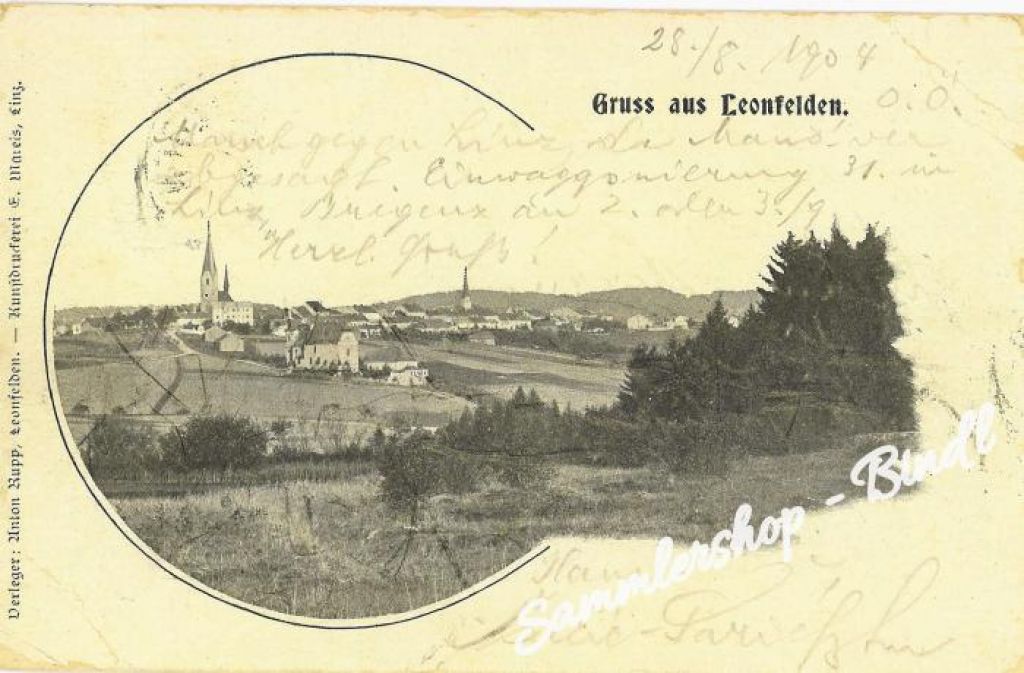 28./8. 1904
Gruss aus Leonfelden.
O.Ö.
Marsch gegen Linz, die Manöver
abgesagt. Einwaggonierung 31. in
Linz, Bregenz an 2. oder 3./9
Herzl. Gruß!
Verleger: Anton Rupp, Leonfelden. — Kunstdruckerei E. Mareis, Linz.
Sammlershop - Bindl